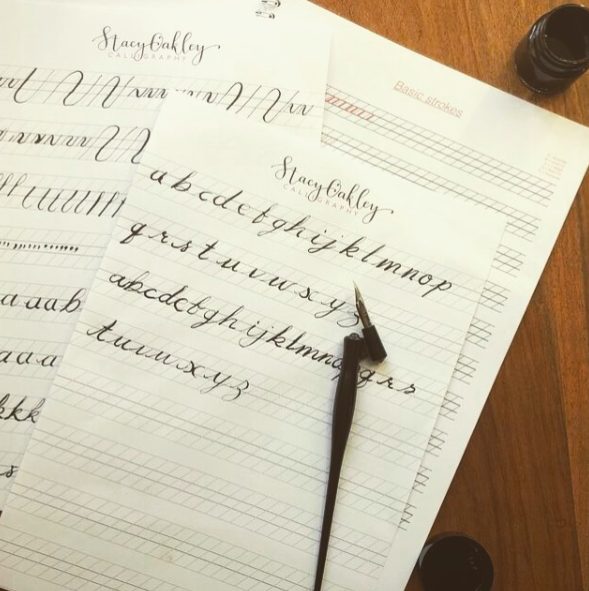 Stacy Oakley
CALLIGRAPHY
aaab
aaa
kkk
s
Basic strokes
Stacy Oakley
CALLIGRAPHY
abcdefghijklmnop
qrstuvwxyz
abcdefghijklmnopqrs
tuvwxyz